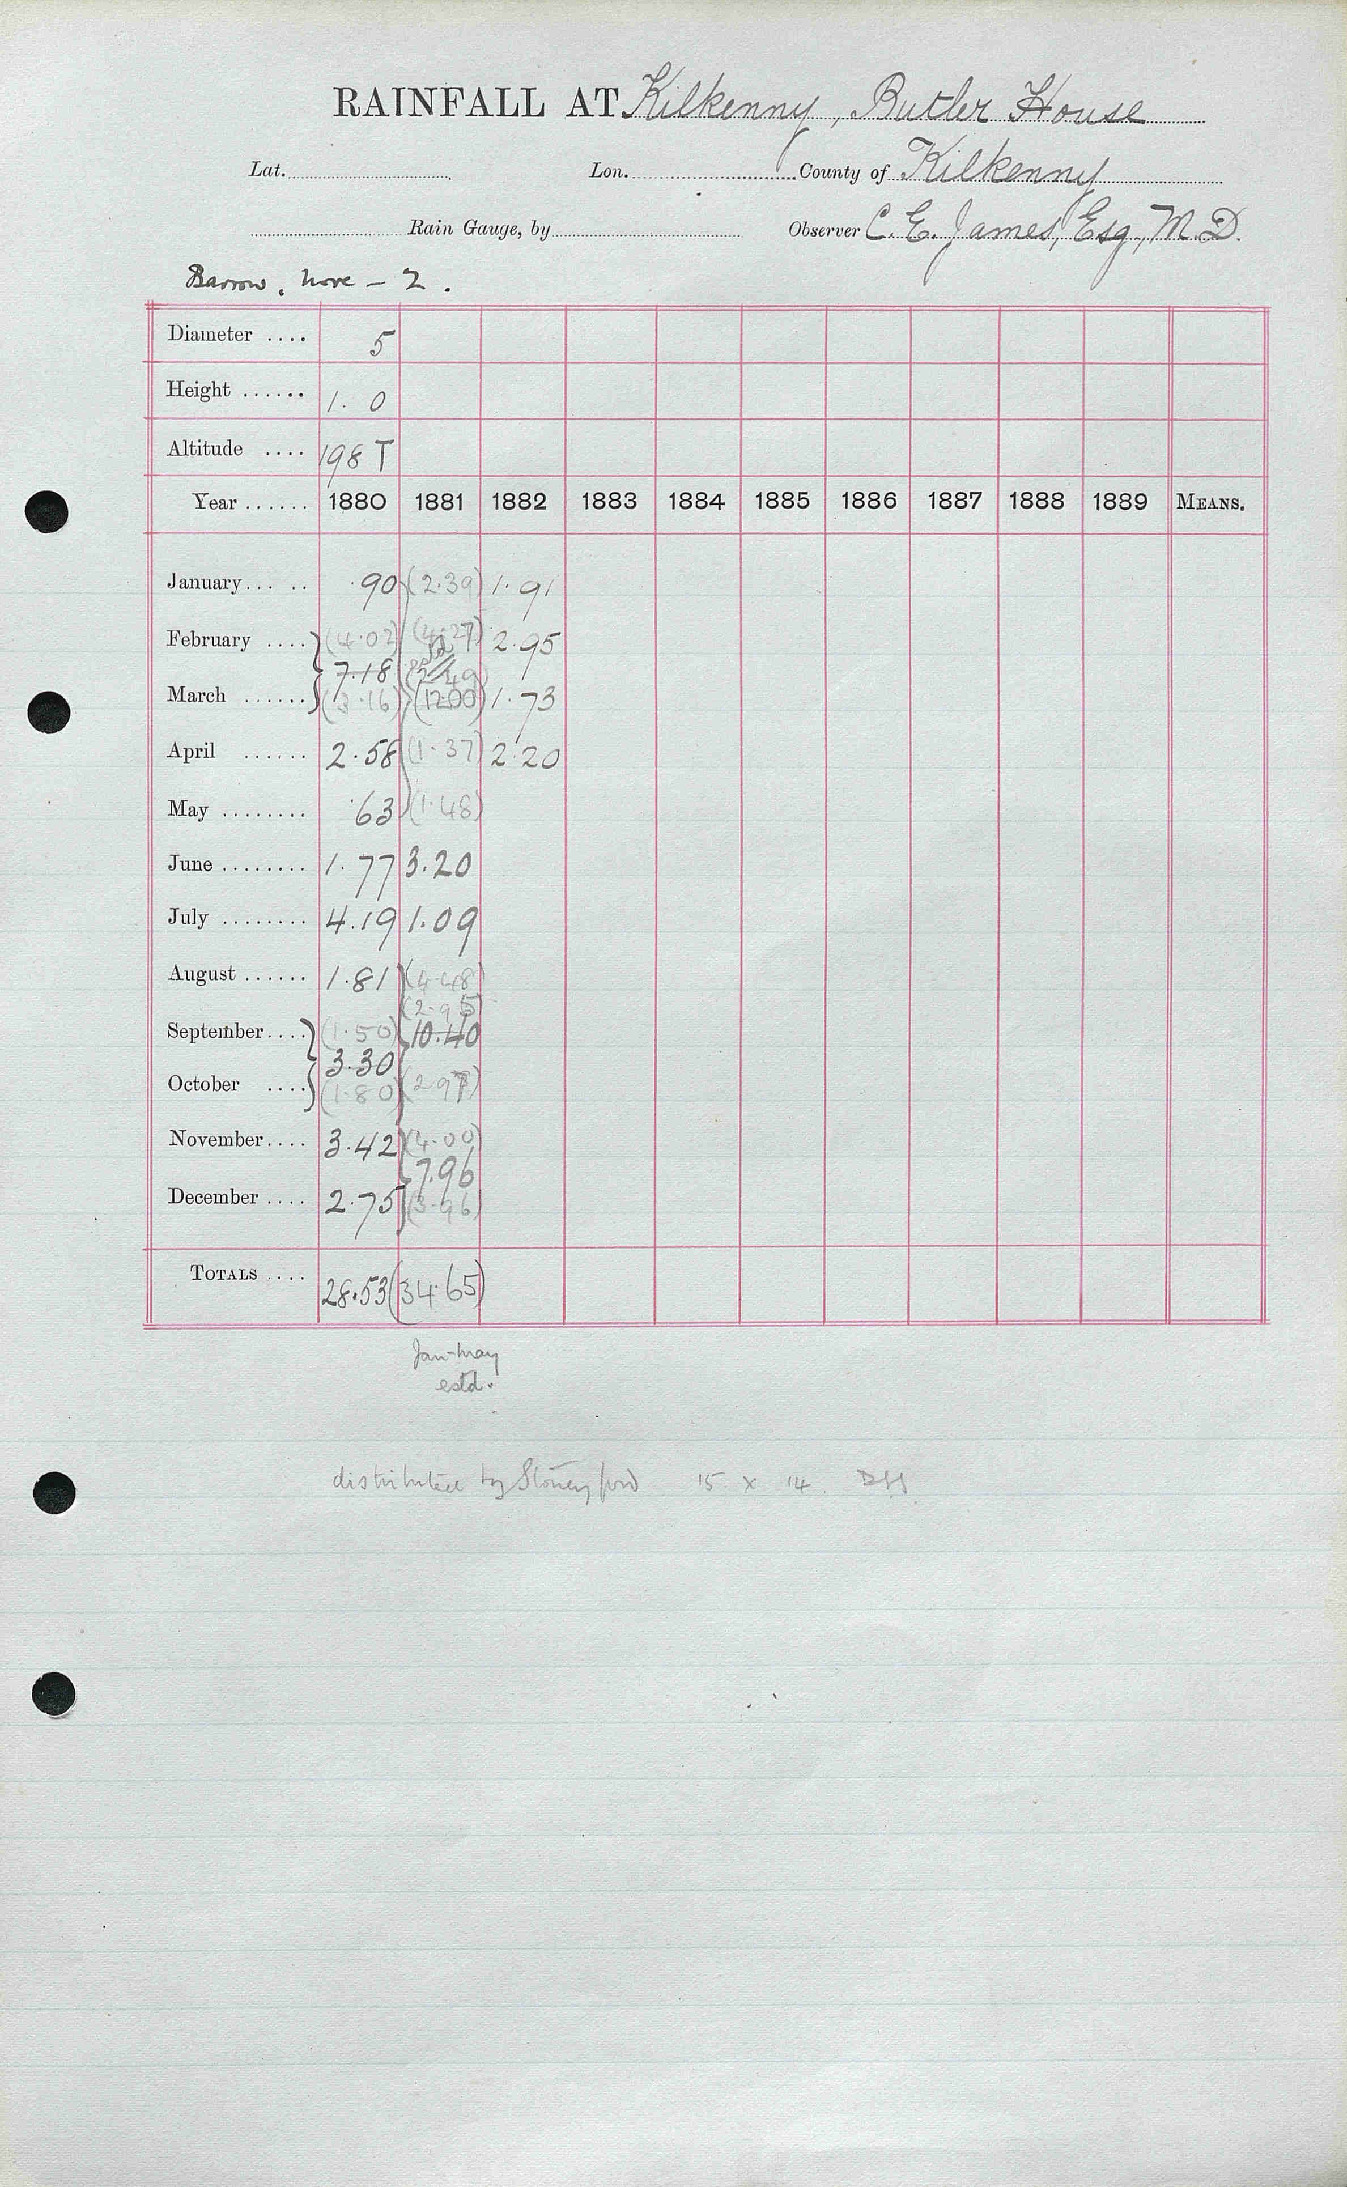 RAINFALL AT Kilkenny, Butler House
Lat. Lon. County of Kilkenny
Rain Gauge, by Observer C. E. James, Esq., M.D.
Barrow, Nore - 2.
Diameter .... 5
Height ...... 1. 0
Altitude .... 198 T
Year ...... 1880 1881 1882 1883 1884 1885 1886 1887 1888 1889 MEANS.
January... .. .90 (2.39) 1.91
February .... (4.02) (4.27) 2.95
7.18 estd (2.49)
March ...... (3.16) (12.00) 1.73
April ...... 2.58 (1.37) 2.20
May ........ .63 (1.48)
June ........ 1.77 3.20
July ........ 4.19 1.09
August ...... 1.81 (4.48)
(2.95)
September.... (1.50) 10.40
3.30
October .... (1.80) (2.97)
November.... 3.42 (4.00)
7.96
December .... 2.75 (3.96)
TOTALS .... 28.53 (34.65)
Jan-May
estd.
distributed by Stoneyford 15 x 14.